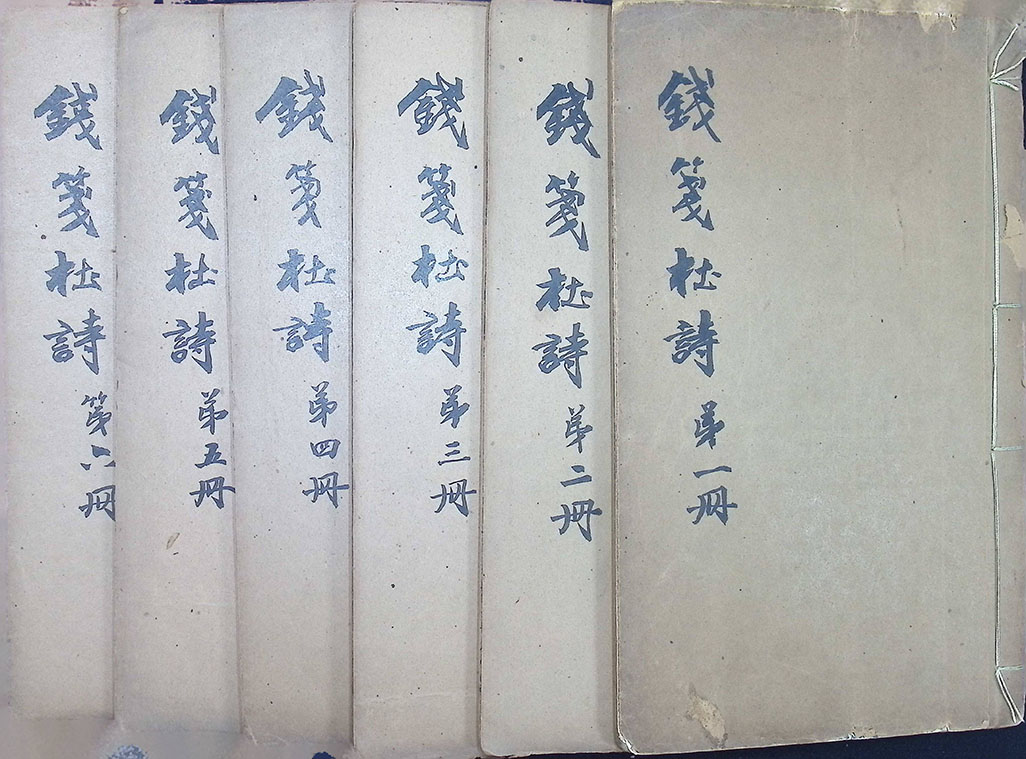 錢箋杜詩 弟一冊
錢箋杜詩 弟二冊
錢箋杜詩 弟三冊
錢箋杜詩 弟四冊
錢箋杜詩 弟五冊
錢箋杜詩 第六冊